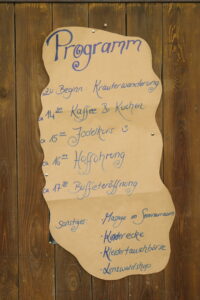 Programm
zu Beginn Kräuterwanderung
ca 14⁰⁰ Kaffee & Kuchen
ca 15⁰⁰ Jodelkurs
ca 16⁰⁰ Hofführung
ca 17³⁰ Buffeteröffnung
Sonstiges: Massage im
- Kinderecke
- Kleidertauschbörse